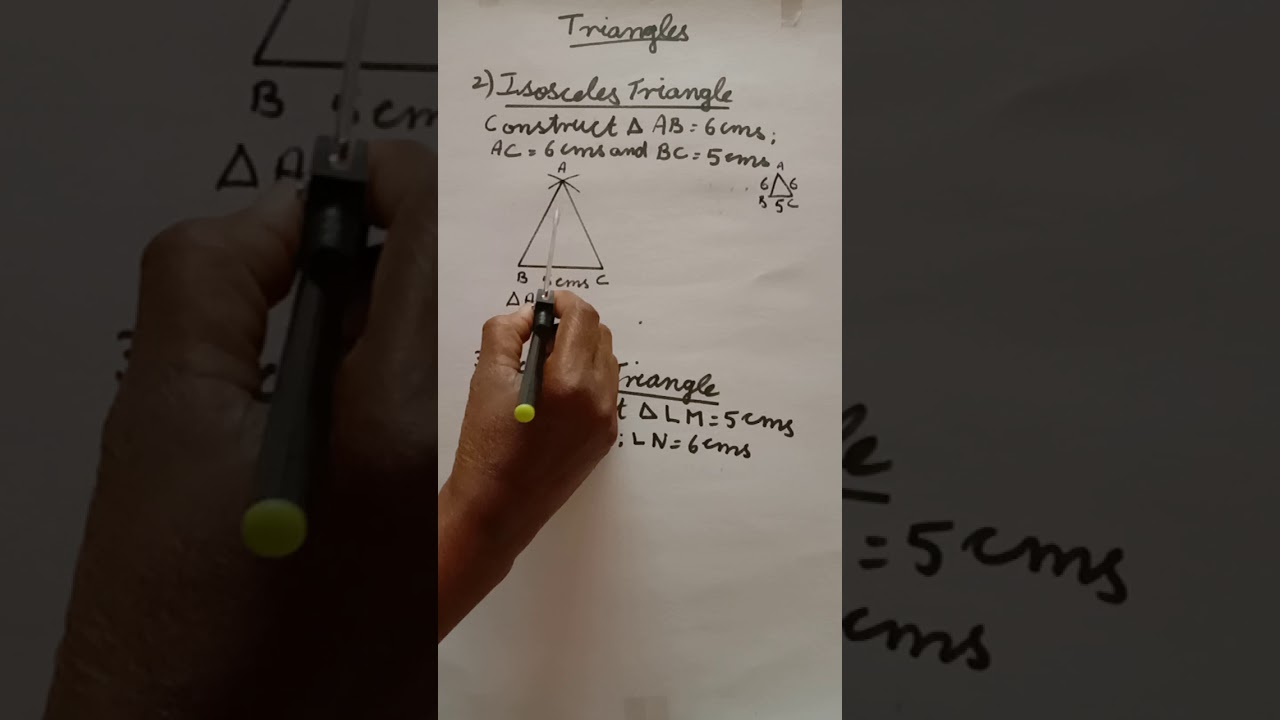 Triangles
2) Isosceles Triangle
Construct Δ AB = 6cms;
AC = 6cms and BC = 5cms
A
6 6
B 5 C
A
B cms C
Δ A
Triangle
Δ LM = 5cms
; LN = 6cms